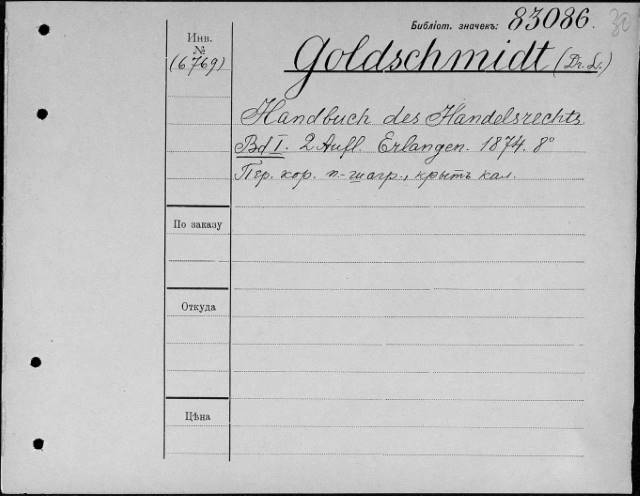 Библіот. значекъ: 83086.
30
Инв.
№
(6769)
Goldschmidt (Dr. L.)
Handbuch des Handelsrechts
Bd I. 2 Aufl. Erlangen. 1874. 8°
Пер. кор. п.-шагр., крытъ кал.
По заказу
Откуда
Цѣна